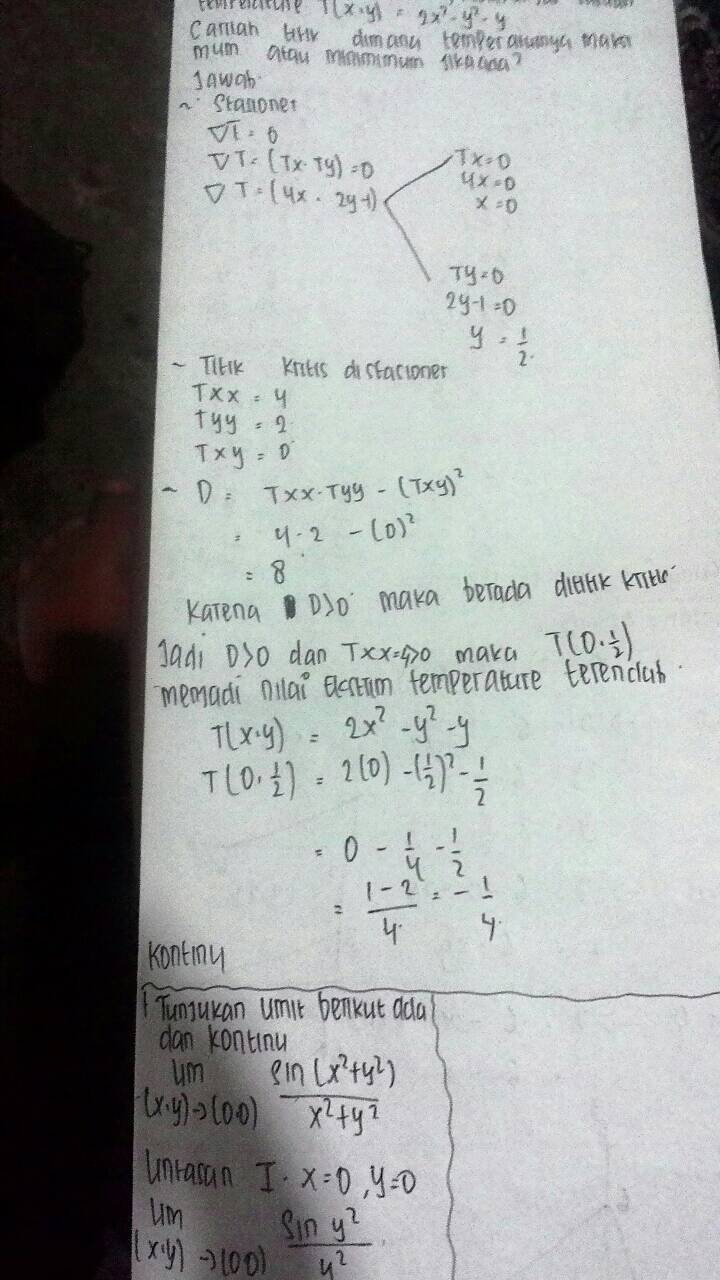 temperature T(x.y) = 2x²-y²-y
Carilah titik dimana temperaturnya maksi
mum atau minimimum jika ada?
Jawab
~ Stasioner
∇T = 0
∇T = (Tx. Ty) = 0
∇T = (4x . 2y-1)
Tx=0
4x=0
x=0
Ty=0
2y-1=0
y = 1/2.
~ Titik kritis di stasioner
Txx = 4
Tyy = 2
Txy = 0
~ D = Txx.Tyy - (Txy)²
= 4.2 - (0)²
= 8
Karena D>0 maka berada dititik kritis
Jadi D>0 dan Txx=4>0 maka T(0.1/2)
menjadi nilai Ekstrim temperature terendah.
T(x.y) = 2x² -y² -y
T(0.1/2) = 2(0) -(1/2)² - 1/2
= 0 - 1/4 - 1/2
= (1-2)/4 = - 1/4.
Kontinu
1 Tunjukan limit berikut ada
dan kontinu
lim (x.y)→(00) sin(x²+y²)/x²+y²
Lintasan I. x=0, y=0
lim (x.y)→(00) sin y²/y²